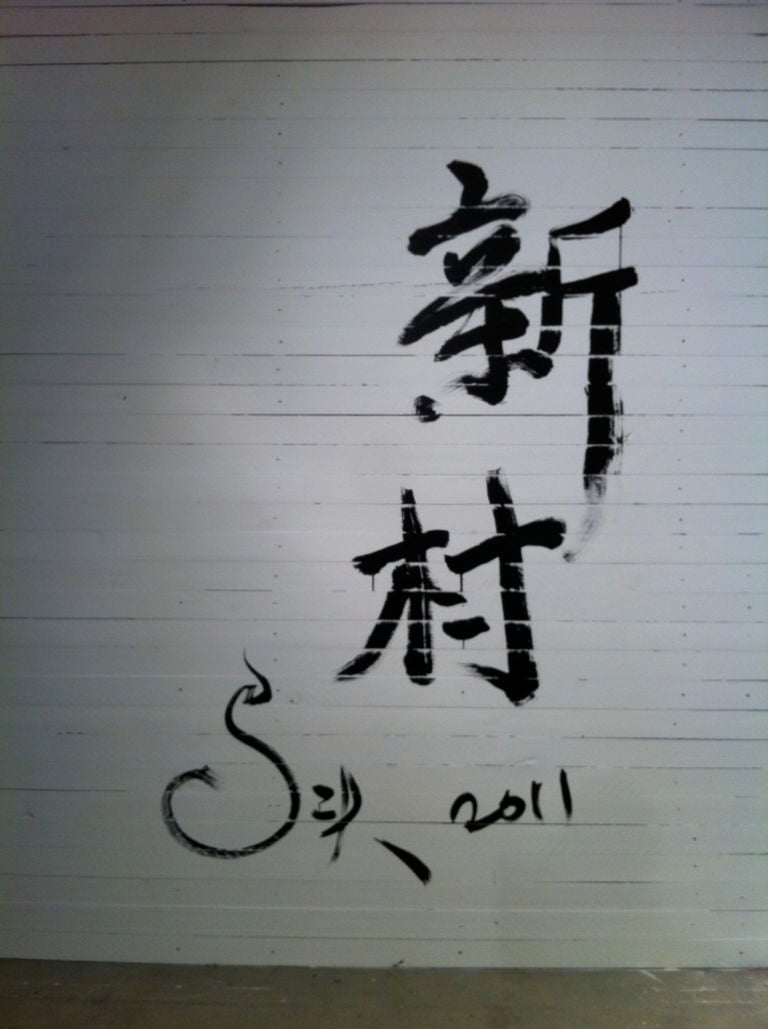 新村
2011